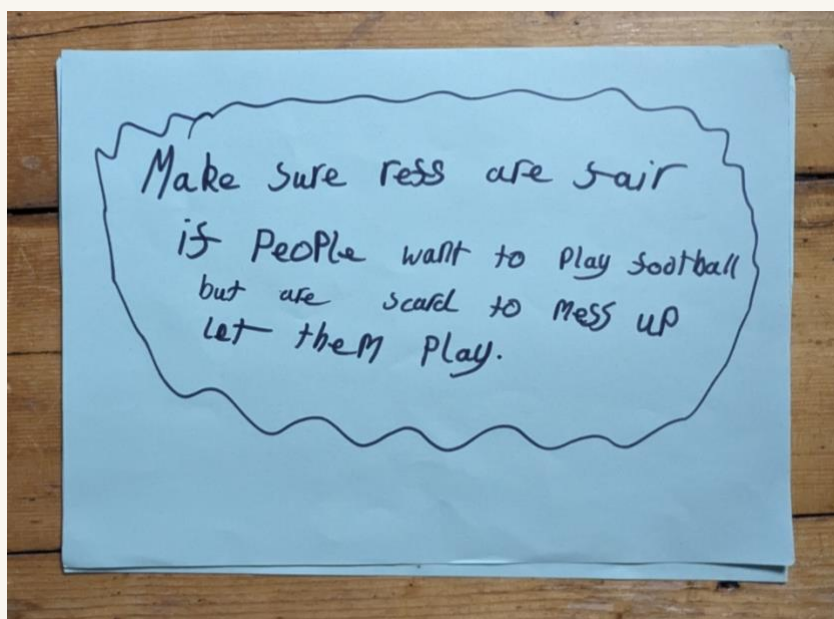 Make sure ress are fair
if PeoPle want to Play football
but are scard to Mess up
Let theM Play.